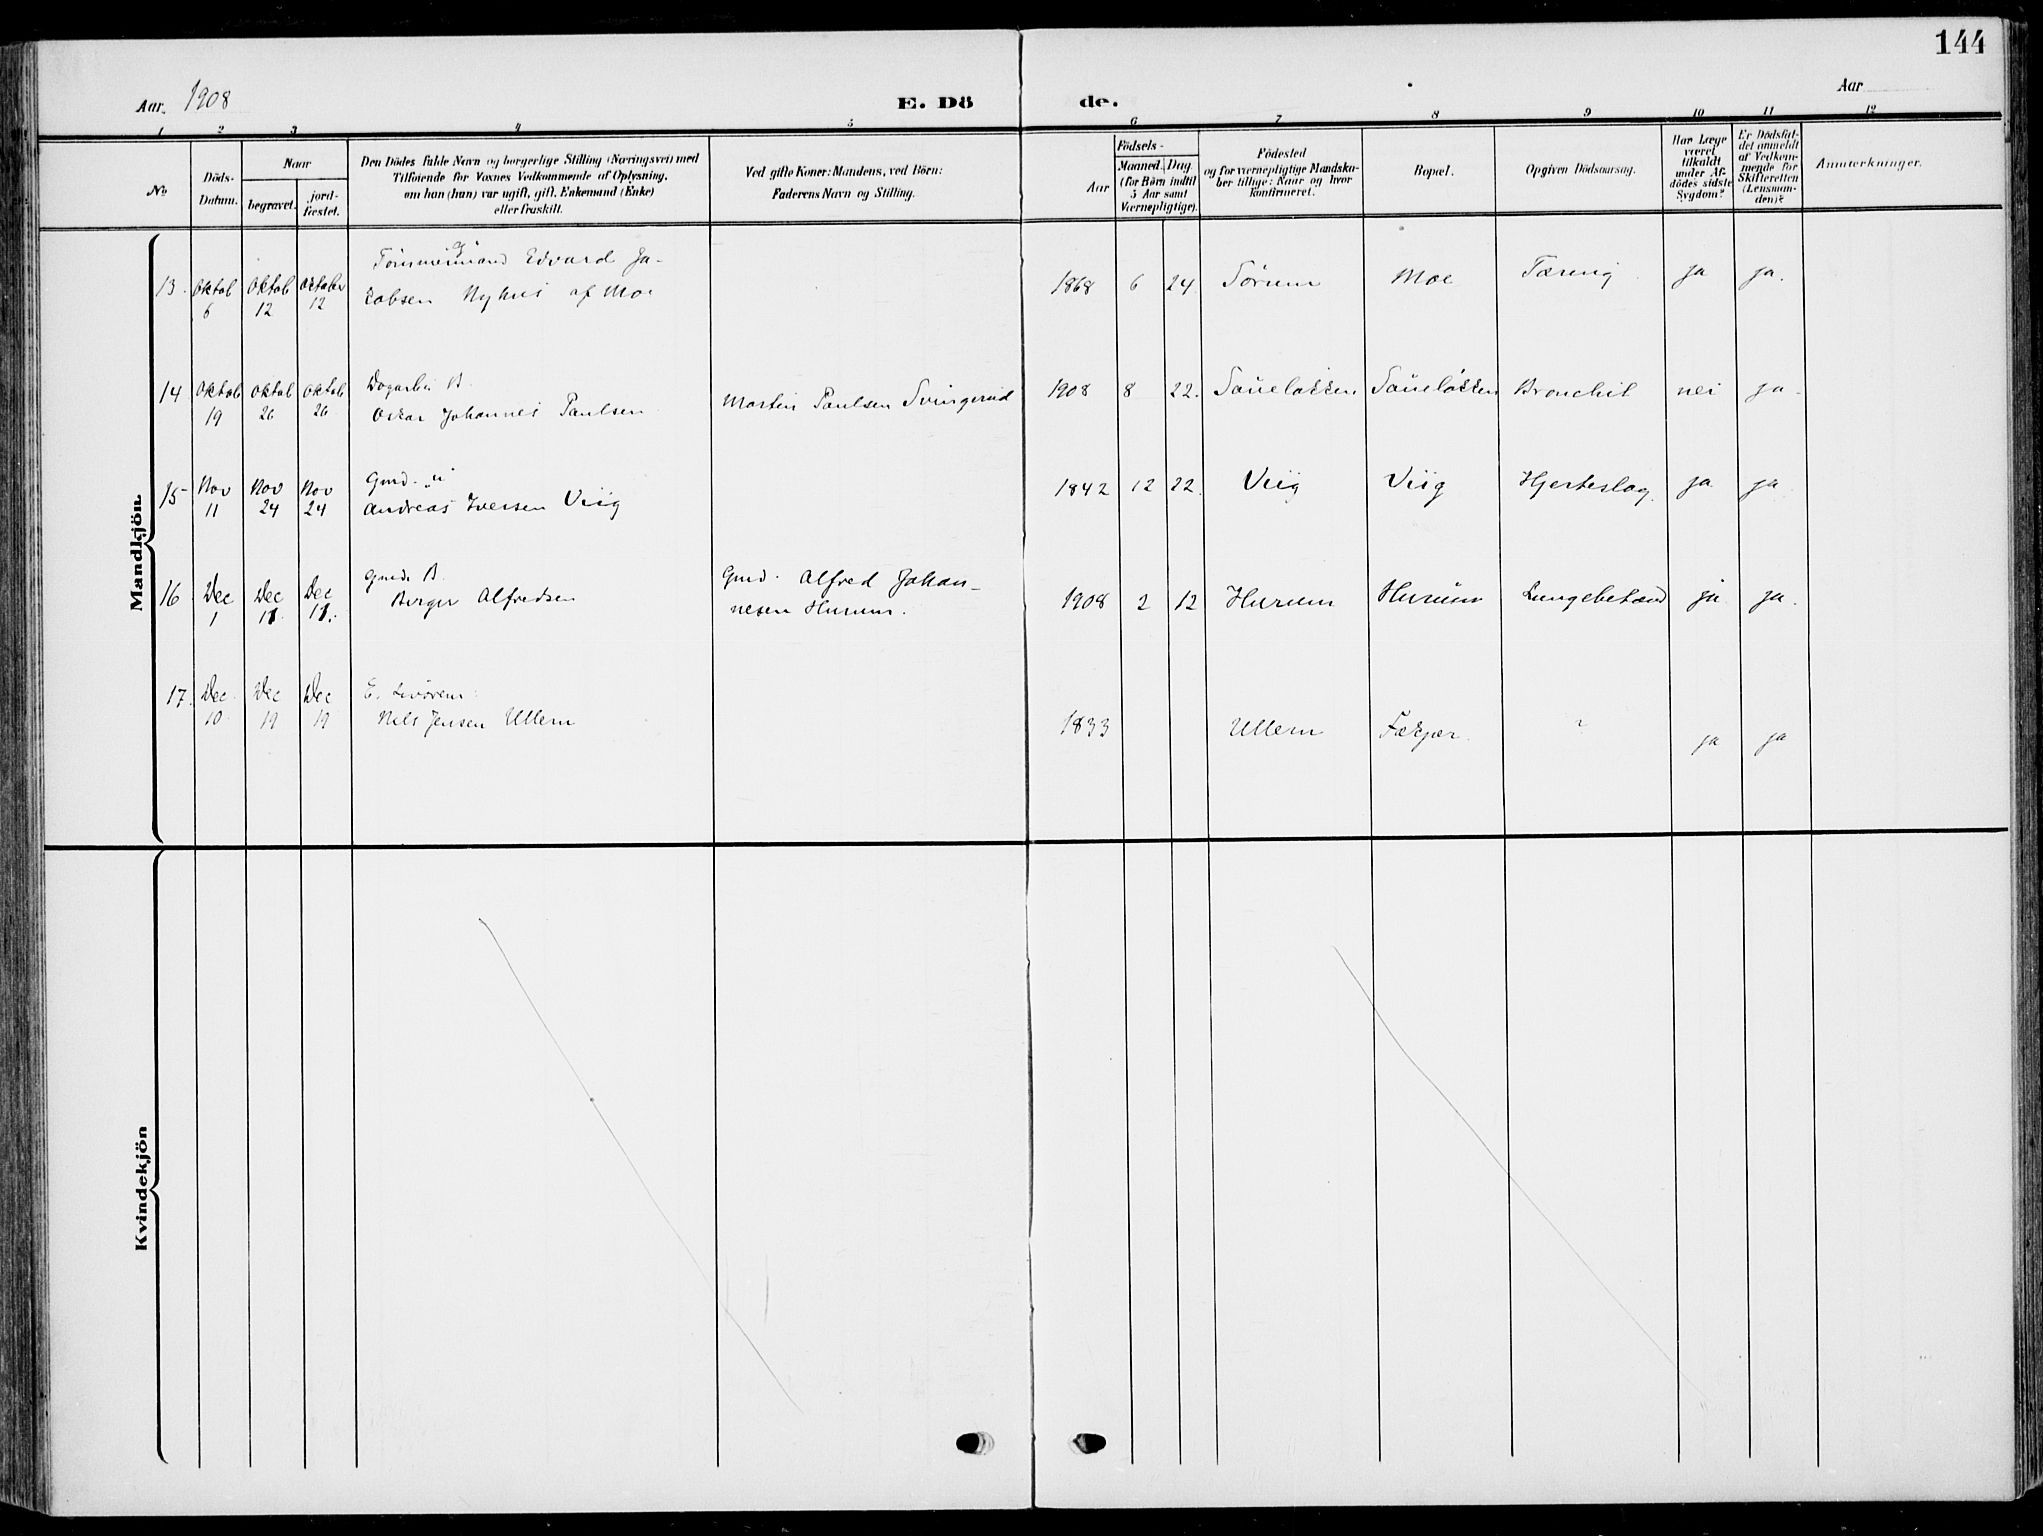 144
Aar. 1908
E. Dö
de.
Aar
1 2 3 4 5 6 7 8 9 10 11 12
No
Döds-
Datum.
Naar
begravet.
jord-
fæstet.
Den Dödes fulde Navn og borgerlige Stilling (Næringsvei) med
Tilföiende for Voxnes Vedkommende af Oplysning,
om han (hun) var ugift, gift, Enkemand (Enke)
eller fraskilt.
Ved gifte Koner: Mandens, ved Börn:
Faderens Navn og Stilling.
Födsels-
Aar
Maaned. Dag.
(for Börn indtil
5 Aar samt
Værnepligtige).
Födested
og for værnepligtige Mandska-
ber tillige: Naar og hvor
konfirmeret.
Bopæl.
Opgiven Dödsaarsag.
Har Læge
været
tilkaldt
under Af-
dödes sidste
Sygdom?
Er Dödsfal-
det anmeldt
af Vedkom-
mende for
Skifteretten
(Lensman-
den)?
Anmærkninger.
Mandkjön.
13. Oktob 6 Oktob 12 Oktober 12
Tømmermand Edvard Ja-
kobsen Nyhus af Moe
1868 6 24 Sørum Moe Tæring ja ja.
14 Oktob 19 Oktob 26 Oktob 26
Dagarbei B.
Oskar Johannes Paulsen
Martin Paulsen Svingerud
1908 8 22. Saueløkken Saueløkken Bronchit nei ja
15 Nov 11 Nov 24 Nov 24
Gmd.
Andreas Iversen Viig
1842 12 22. Viig Viig Hjerteslag. ja ja
16 Dec 1 Dec 11. Dec 11.
Gmds B.
Birger Alfredsen
Gmd. Alfred Johan-
nesen Hurum.
1908 2 12 Hurum Hurum Lungebetænd ja ja.
17. Dec 10. Dec 19 Dec 19
Nils Jensen Ullern
1833 Ullern Fækjær. ? ja ja
Kvindekjön